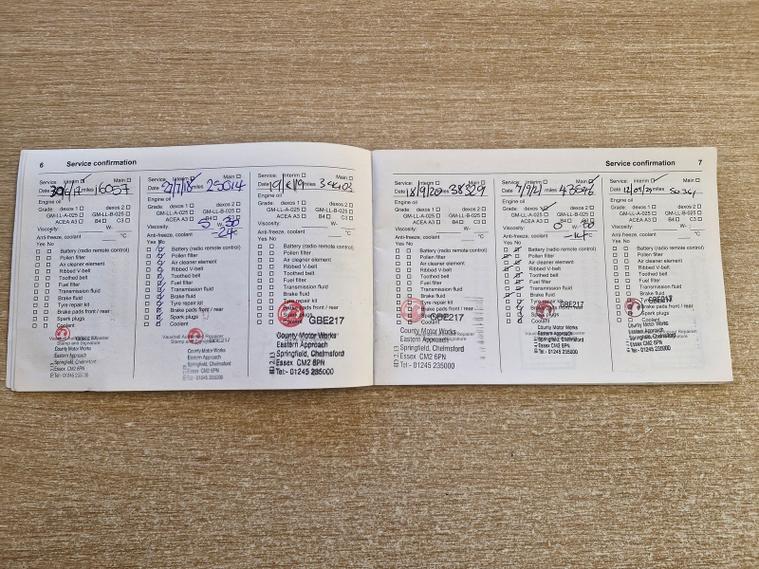 6 Service confirmation
Service: Interim Main
Date 30/6/17 miles 16057
Engine oil
Grade: dexos 1 dexos 2
GM-LL-A-025 GM-LL-B-025
ACEA A3 B4 C3
Viscosity: W-
Anti-freeze, coolant °C
Yes No
Battery (radio remote control)
Pollen filter
Air cleaner element
Ribbed V-belt
Toothed belt
Fuel filter
Transmission fluid
Brake fluid
Tyre repair kit
Brake pads front / rear
Spark plugs
Coolant
County Motor Works
Eastern Approach
Springfield, Chelmsford
Essex CM2 6PN
Service: Interim Main
Date 27/7/18 miles 25014
Engine oil
Grade: dexos 1 dexos 2
GM-LL-A-025 GM-LL-B-025
ACEA A3 B4 C3
Viscosity: 5 W- 30
Anti-freeze, coolant -24 °C
Yes No
Battery (radio remote control)
Pollen filter
Air cleaner element
Ribbed V-belt
Toothed belt
Fuel filter
Transmission fluid
Brake fluid
Tyre repair kit
Brake pads front / rear
Spark plugs
Coolant
GBE217
County Motor Works
Eastern Approach
Springfield, Chelmsford
Essex CM2 6PN
Tel:- 01245 235000
Main
Date miles
Engine oil
Grade: dexos 1 dexos 2
GM-LL-A-025 GM-LL-B-025
ACEA A3 B4 C3
Viscosity: W-
Anti-freeze, coolant °C
Yes No
Battery (radio remote control)
Pollen filter
Air cleaner element
Ribbed V-belt
Toothed belt
Fuel filter
Transmission fluid
Brake fluid
Tyre repair kit
Brake pads front / rear
Spark plugs
GBE217
County Motor Works
Eastern Approach
Springfield, Chelmsford
Essex CM2 6PN
Tel:- 01245 235000
Service confirmation 7
Service: Interim Main
Date 18/9/20 miles 38329
Engine oil
Grade: dexos 1 dexos 2
GM-LL-A-025 GM-LL-B-025
ACEA A3 B4 C3
Viscosity: W-
Anti-freeze, coolant °C
Yes No
Battery (radio remote control)
Pollen filter
Air cleaner element
Ribbed V-belt
Toothed belt
Fuel filter
Transmission fluid
Brake fluid
Tyre repair kit
Brake pads front / rear
Spark plugs
Coolant
GBE217
County Motor Works
Eastern Approach
Springfield, Chelmsford
Essex CM2 6PN
Tel:- 01245 235000
Service: Interim Main
Date 7/9/21 miles
Engine oil
Grade: dexos 1 dexos 2
GM-LL-A-025 GM-LL-B-025
ACEA A3 B4
Viscosity: 0 W-
Anti-freeze, coolant °C
Yes No
Battery (radio remote control)
Pollen filter
Air cleaner element
Ribbed V-belt
Toothed belt
Fuel filter
Transmission fluid
Brake fluid
Tyre repair kit
Brake pads front / rear
Spark plugs
Coolant
GBE217
County Motor Works
Eastern Approach
Springfield, Chelmsford
Essex CM2 6PN
Tel:- 01245 235000
Service: Interim Main
Date miles
Engine oil
Grade: dexos 1 dexos 2
GM-LL-A-025 GM-LL-B-025
ACEA A3 B4 C3
Viscosity: W-
Anti-freeze, coolant °C
Yes No
Battery (radio remote control)
Pollen filter
Air cleaner element
Ribbed V-belt
Toothed belt
Fuel filter
Transmission fluid
Brake fluid
Tyre repair kit
Brake pads front / rear
Spark plugs
Coolant
GBE217
County Motor Works
Eastern Approach
Springfield, Chelmsford
Essex CM2 6PN
Tel:- 01245 235000